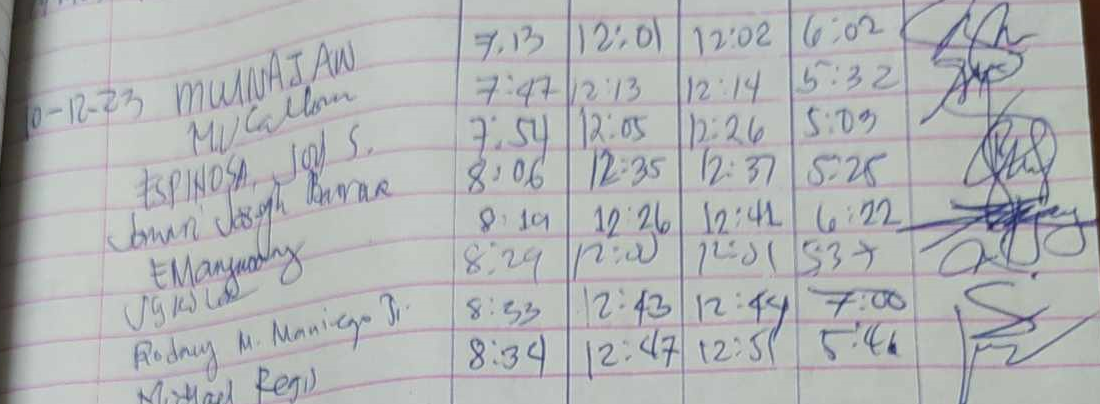 7:13 12:01 12:02 6:02
10-12-23 MUNAJAW 7:47 12:13 12:14 5:32
7:54 12:05 12:26 5:03
ESPINOSA, Joy S. 8:06 12:35 12:37 5:25
8:19 12:26 12:41 6:22
8:29 12:00 12:01 537
8:33 12:43 12:44 7:00
Rodney M. Maniego Jr. 8:34 12:47 12:51 5:46
Michael Regis